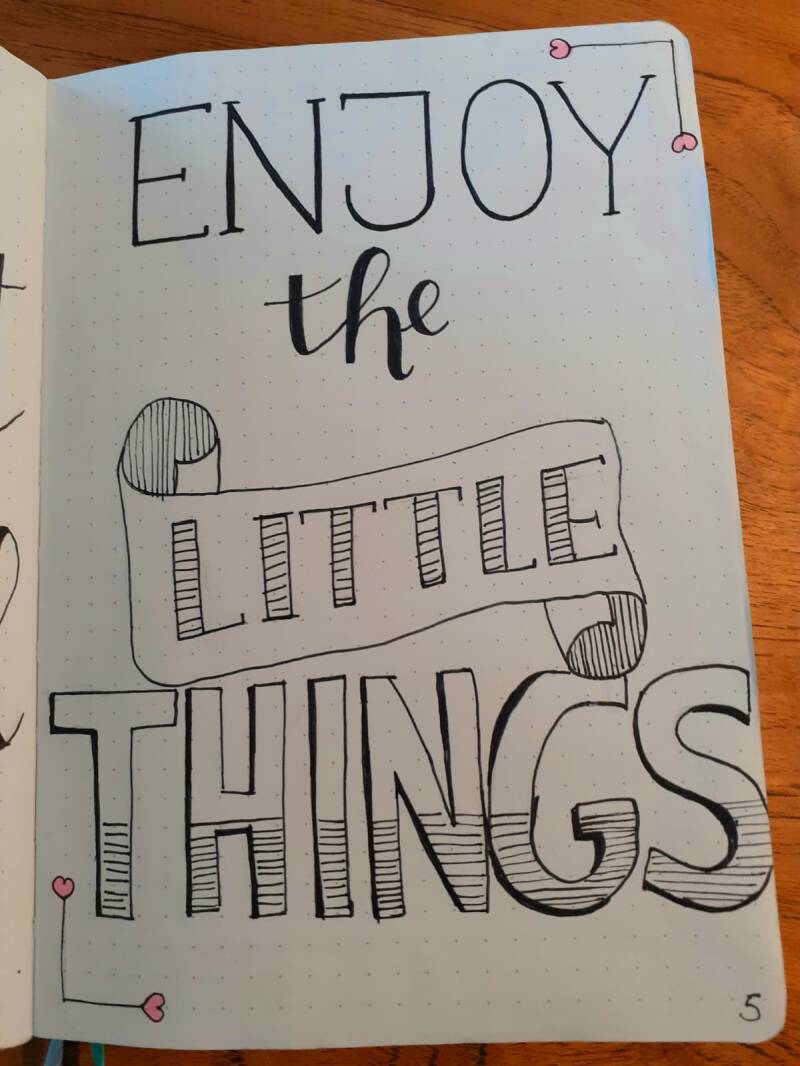 ENJOY
the
LITTLE
THINGS
5